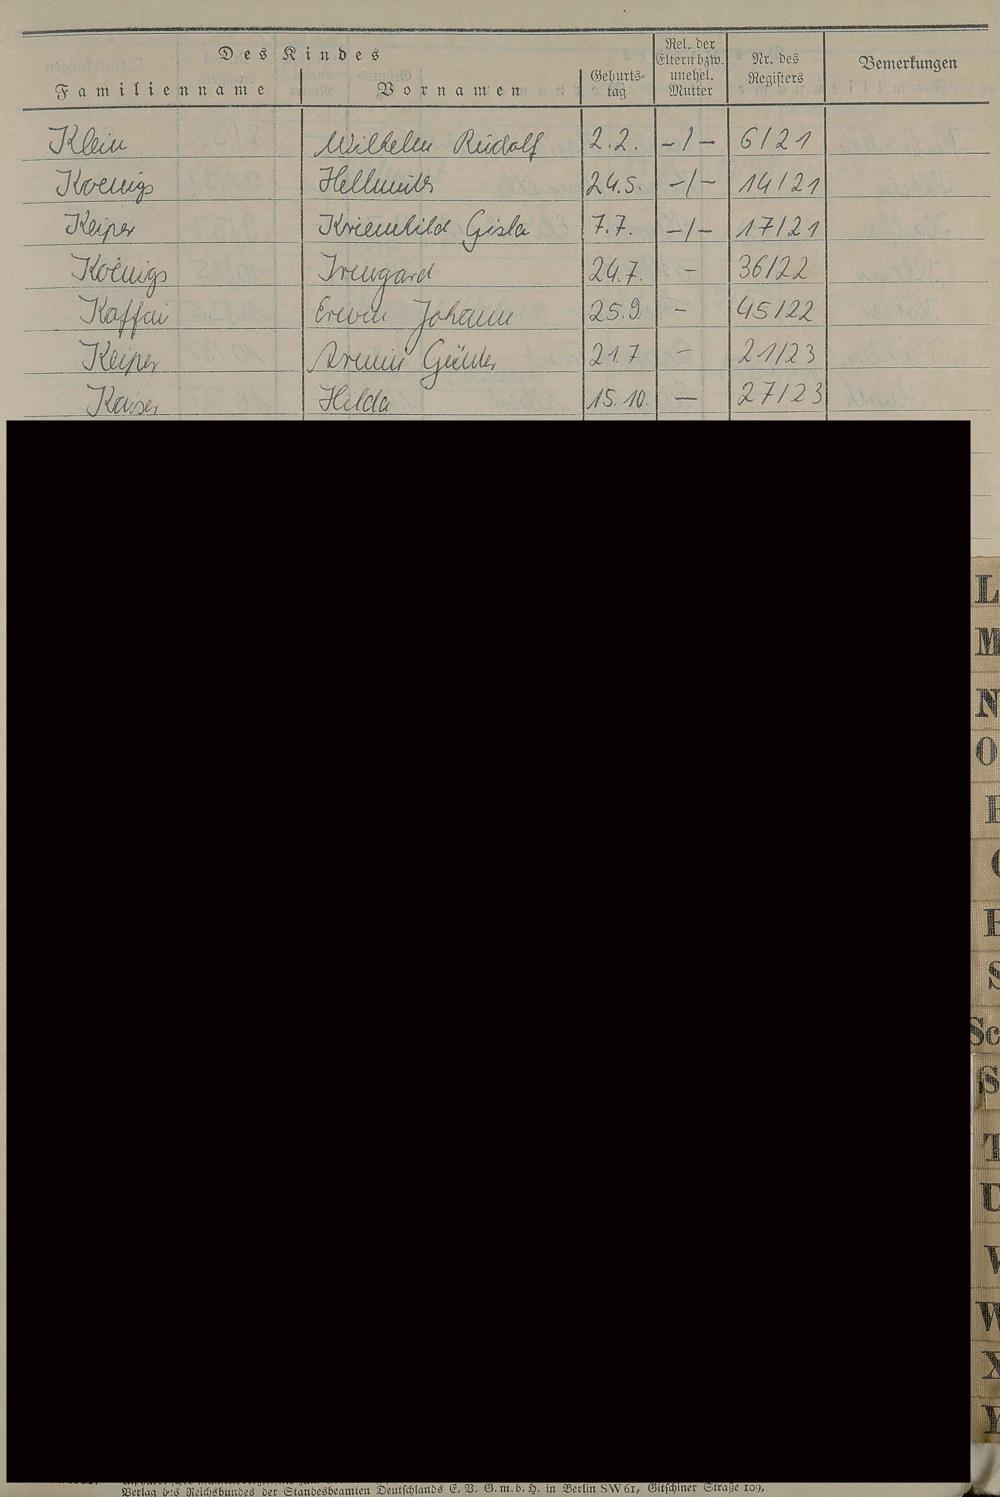 Des Kindes
Familienname Vornamen Geburts-tag Rel. der Eltern bzw. unehel. Mutter Nr. des Registers Bemerkungen
Klein Wilhelm Rudolf 2.2. -/- 6/21
Koenigs Hellmuth 24.5. -/- 14/21
Keiper Kriemhild Gisla 7.7. -/- 17/21
Koenigs Irmgard 24.7. - 36/22
Kaffai Erwin Johann 25.9. - 45/22
Keiper Armin Günter 21.7 - 21/23
Kaiser Helda 15.10. - 27/23
L
M
N
O
S
Sc
S
T
W
X
Y
Verlag des Reichsbundes der Standesbeamten Deutschlands E. V. G. m. b. H. in Berlin SW 61, Gitschiner Straße 109.